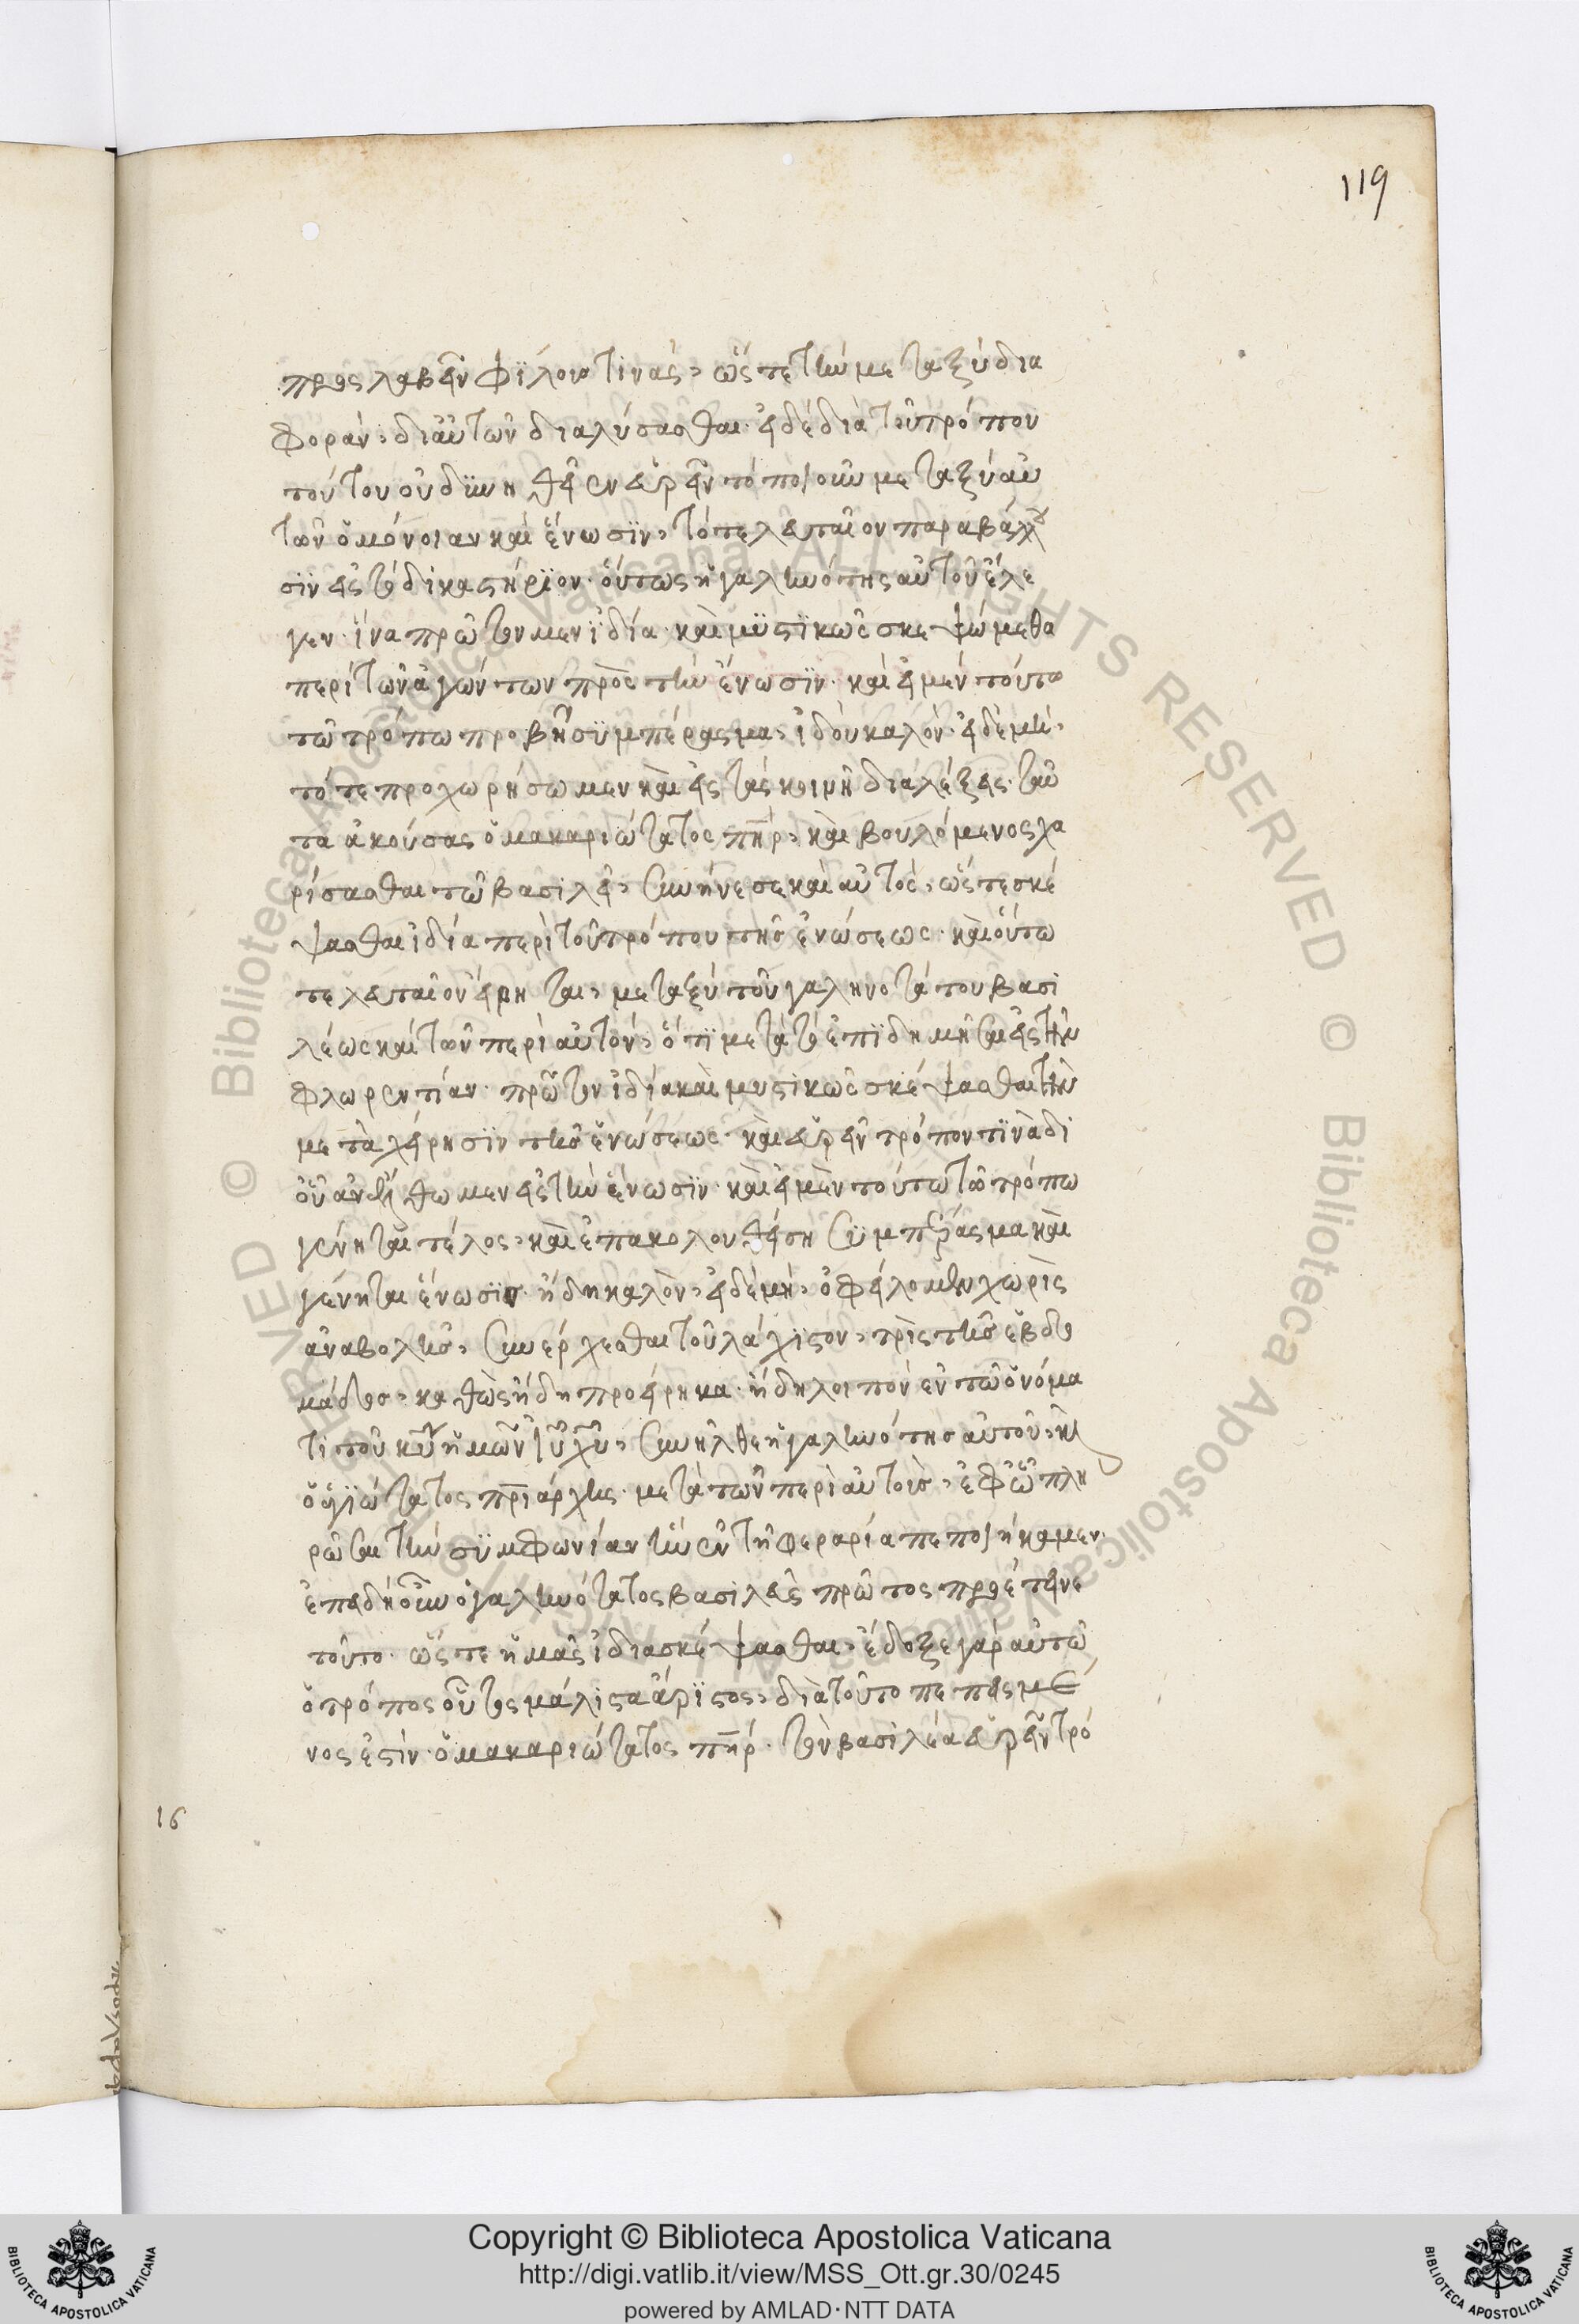 119
προσλαβεῖν φίλους τινὰς, ὥστε τὴν μεταξὺ δια
φορὰν, δι' αὐτῶν διαλύσασθαι. εἰ δὲ διὰ τοῦ τρόπου
τούτου οὐ δυνηθεῖεν εὑρεῖν τὸ ποιοῦν μεταξὺ αὐ
τῶν ὁμόνοιαν καὶ ἕνωσιν, τὸ τελευταῖον παραβάλλου
σιν εἰς τὸ δικαστήριον. οὕτως ἡ γαληνότης αὐτοῦ ἔλε
γεν. ἵνα πρῶτον μὲν ἰδία καὶ μυστικῶς σκεψώμεθα
περὶ τῶν ἀγόντων πρὸς τὴν ἕνωσιν. καὶ εἰ μὲν τούτω
τῶ τρόπω προβῆ συμπέρασμα, ἰδοὺ καλόν. εἰ δὲ μὴ,
τότε προχωρήσωμεν καὶ εἰς τὰς κοινὰς διαλέξεις. ταῦ
τα ἀκούσας ὁ μακαριώτατος πηρ, καὶ βουλόμενος χα
ρίσασθαι τῶ βασιλεῖ, συνήνεσε καὶ αὐτὸς, ὥστε σκέ
ψασθαι ἰδία περὶ τοῦ τρόπου τῆς ἑνώσεως. καὶ οὕτω
τελευταῖον εἴρηται, μεταξὺ τοῦ γαληνοτάτου βασι
λέως καὶ τῶν περὶ αὐτὸν, ὅτι μετὰ τὸ ἐπιδημῆσαι εἰς τὴν
φλωρεντίαν. πρῶτον ἰδία καὶ μυστικῶς σκέψασθαι τὴν
μεταχείρησιν τῆς ἑνώσεως. καὶ εὑρεῖν τρόπον τινὰ δι
οὗ ἀνέλθωμεν εἰς τὴν ἕνωσιν. καὶ εἰ μὲν τούτω τῶ τρόπω
γένηται τέλος, καὶ ἐπακολουθήση συμπέρασμα καὶ
γένηται ἕνωσις. ἤδη καλὸν, εἰ δὲ μὴ, ὀφείλομεν χωρὶς
ἀναβολῆς, συνέρχεσθαι τοὐλάχιστον, τρὶς τῆς ἑβδο
μάδος, καθὼς ἤδη προείρηκα. ἤδη λοιπὸν ἐν τῶ ὀνόμα
τι τοῦ κυ ἡμῶν ιυ χυ, συνῆλθεν ἡ γαληνότης αὐτοῦ, καὶ
ὁ ἁγιώτατος πριάρχης. μετὰ τῶν περὶ αὐτοῖς, ἐφ' ὧ πλη
ρῶσαι τὴν συμφωνίαν ἣν ἐν τῆ φεραρία πεποιήκαμεν.
ἐπειδὴ οὖν ὁ γαληνότατος βασιλεὺς πρῶτος προέτεινε
τοῦτο. ὥστε ἡμᾶς ἰδία σκέψασθαι, ἔδοξε γὰρ αὐτῶ
ὁ τρόπος οὗτος μάλιστα ἄριστος, διὰ τοῦτο πεπεισμέ
νος ἐστὶν. ὁ μακαριώτατος πηρ. τὸν βασιλέα εὑρεῖν τρό
16
Copyright © Biblioteca Apostolica Vaticana
http://digi.vatlib.it/view/MSS_Ott.gr.30/0245
powered by AMLAD·NTT DATA